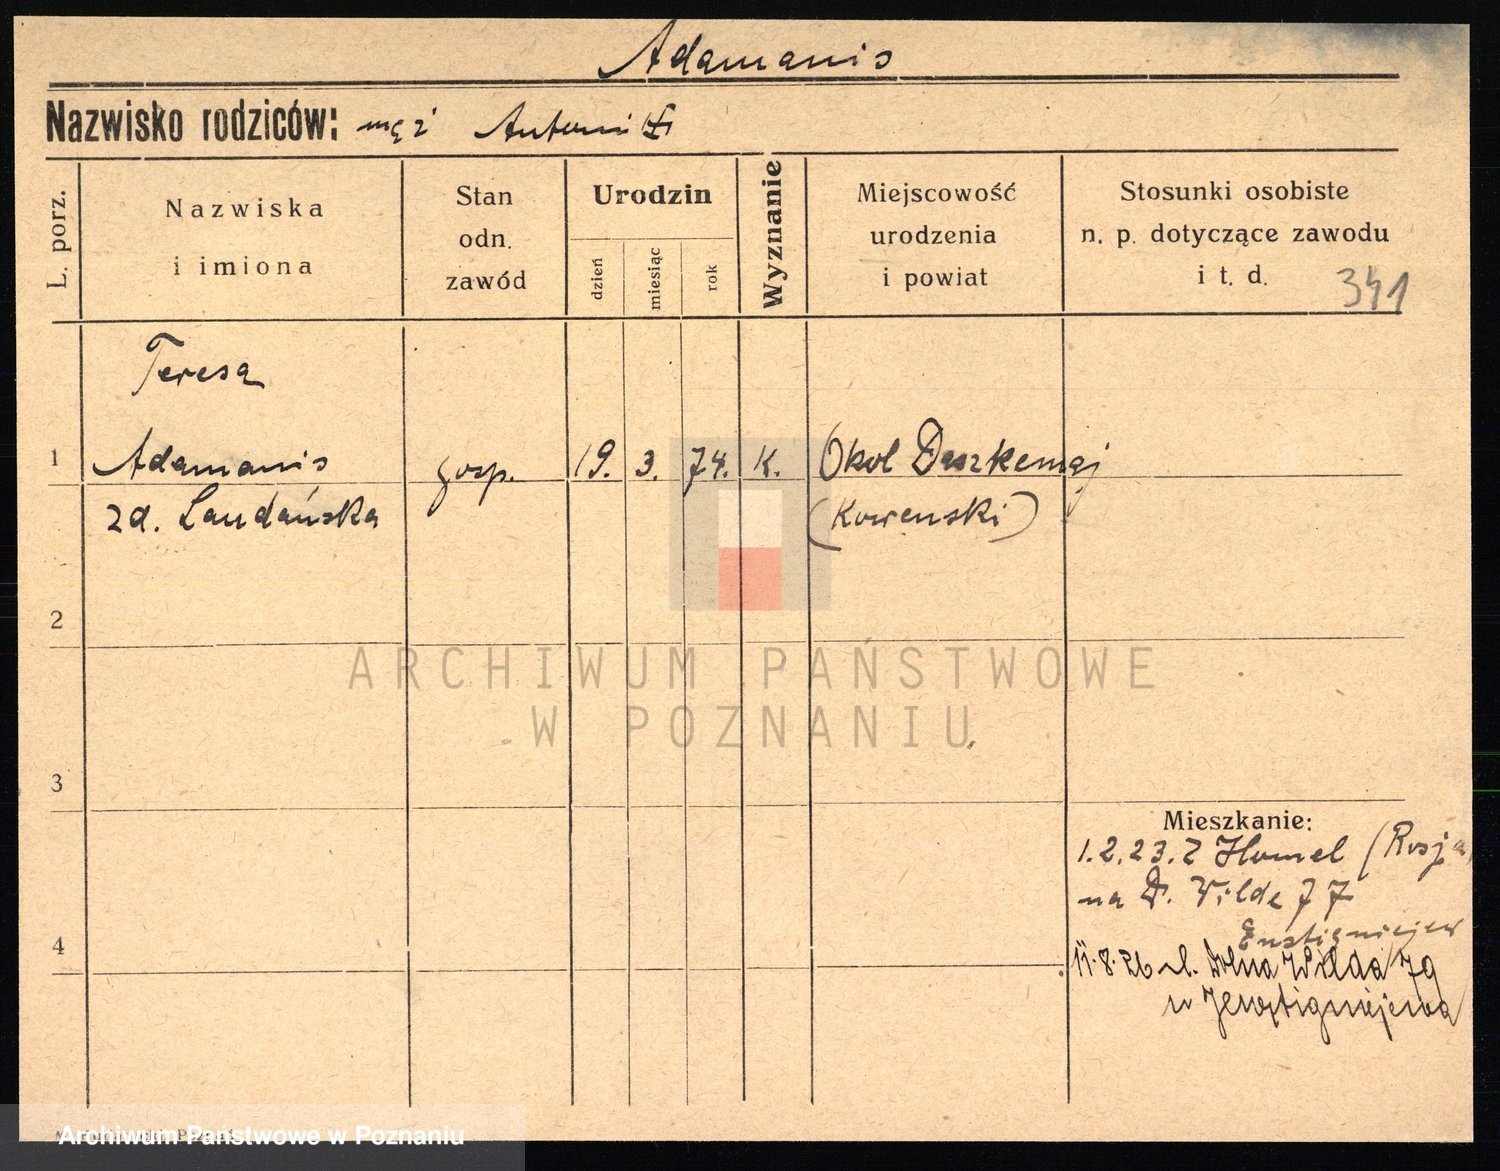 Adamanis
Nazwisko rodziców: mąż Antoni
L. porz.
Nazwiska
i imiona
Stan
odn.
zawód
Urodzin
dzień
miesiąc
rok
Wyznanie
Miejscowość
urodzenia
i powiat
Stosunki osobiste
n. p. dotyczące zawodu
i t. d.
341
Teresa
1 Adamanis gosp. 19. 3. 74. K. Okol
zd. Laudańska (Kowenski)
2
ARCHIWUM PAŃSTWOWE
W POZNANIU
3
Mieszkanie:
1.2.23. z Homel (Rosja)
na D. Wilde 77
4
11.8.26 Dolna Wilda 79
Archiwum Państwowe w Poznaniu